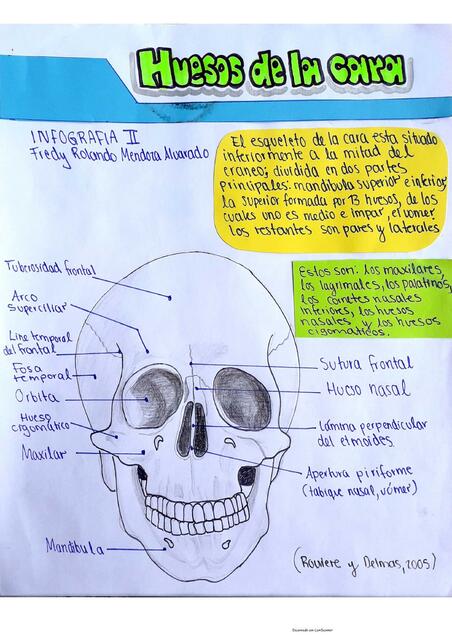 Huesos de la cara
INFOGRAFIA II
Fredy Rolando Mendoza Alvarado
El esqueleto de la cara esta situado
inferiormente a la mitad del
craneo; dividida en dos partes
principales: mandibula superior e inferior
la superior formada por 13 huesos, de los
cuales uno es medio e impar, el vomer.
Los restantes son pares y laterales
Estos son: los maxilares,
los lagrimales, los palatinos,
los cornetes nasales
inferiores, los huesos
nasales y los huesos
cigomaticos.
Tuberosidad frontal
Arco
superciliar
Line temporal
del frontal
Fosa
temporal
Orbita
Hueso
cigomático
Maxilar
Mandibula
Sutura frontal
Hueso nasal
Lámina perpendicular
del etmoides
Apertura piriforme
(tabique nasal, vómer)
(Rouviere y Delmas, 2005)
Escaneado con CamScanner